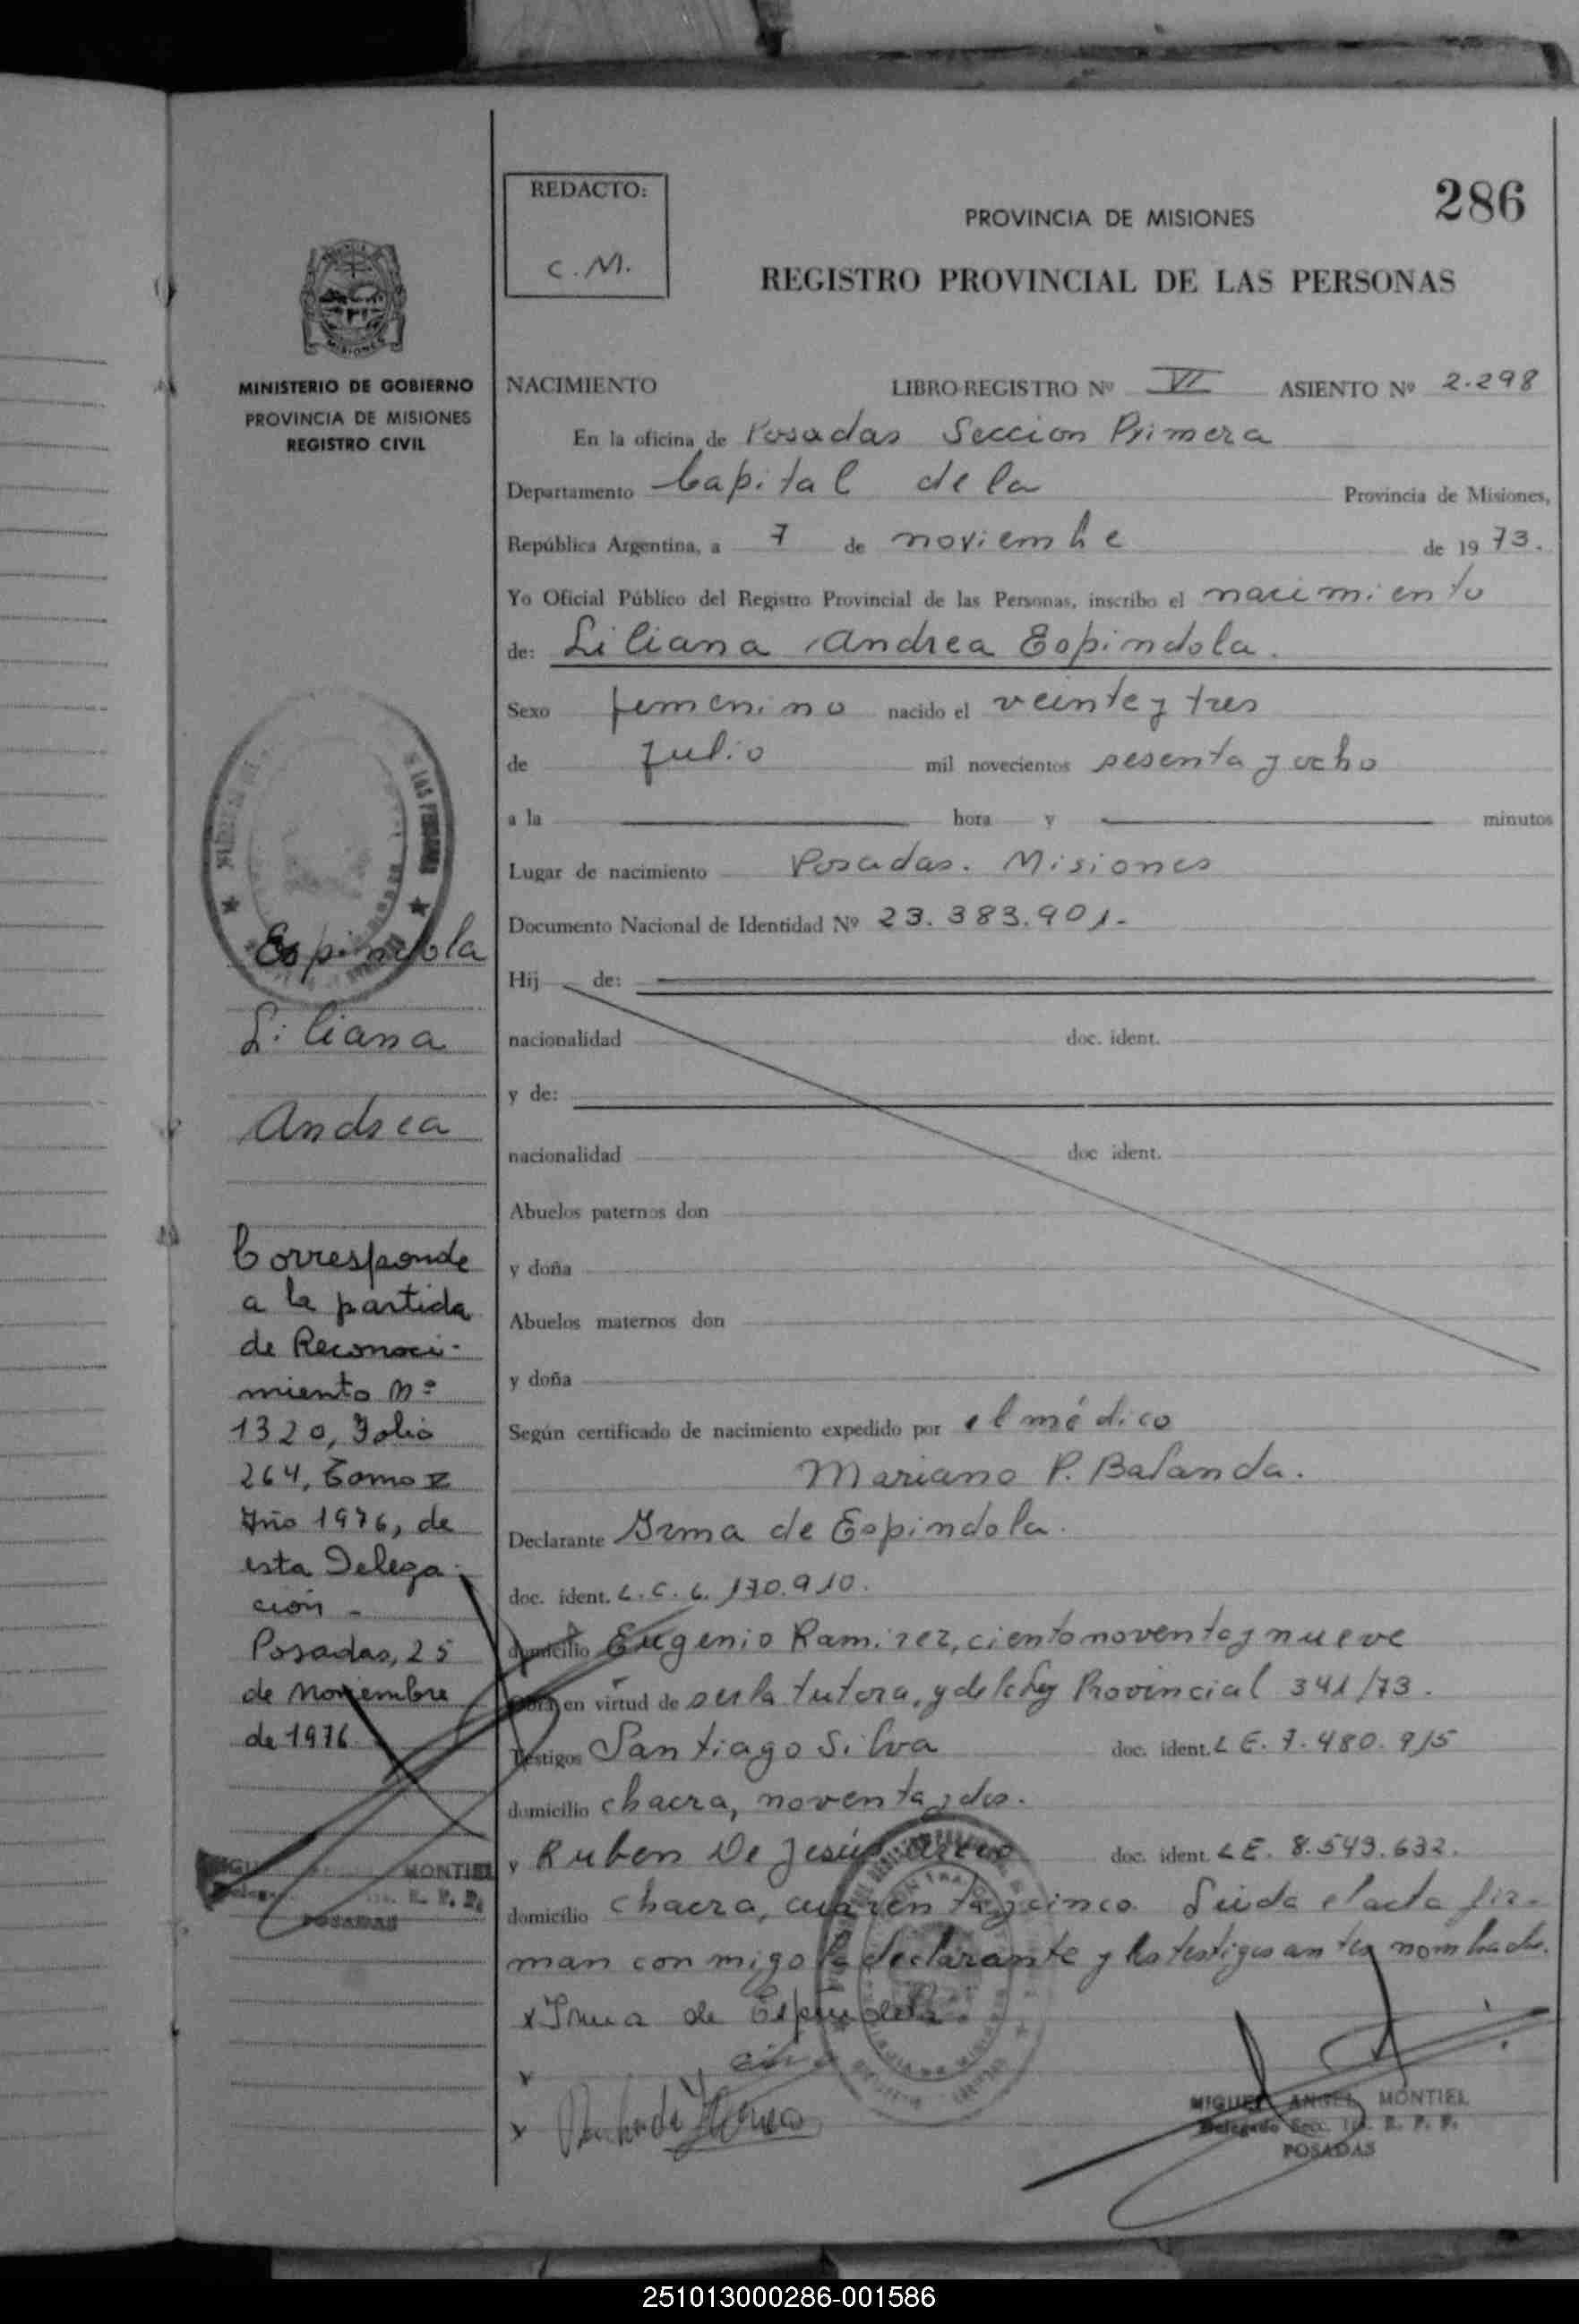 286
REDACTO:
C. M.
PROVINCIA DE MISIONES
REGISTRO PROVINCIAL DE LAS PERSONAS
MISIONES
MINISTERIO DE GOBIERNO
PROVINCIA DE MISIONES
REGISTRO CIVIL
NACIMIENTO LIBRO-REGISTRO Nº VI ASIENTO Nº 2.298
En la oficina de Posadas Seccion Primera
Departamento Capital de la Provincia de Misiones,
República Argentina, a 7 de noviembre de 1973.
Yo Oficial Público del Registro Provincial de las Personas, inscribo el nacimiento
de: Liliana Andrea Espindola.
Sexo femenino nacido el veinte y tres
de Julio mil novecientos sesenta y ocho
a la hora y minutos
Lugar de nacimiento Posadas. Misiones
Documento Nacional de Identidad Nº 23.383.901.-
Hij de:
nacionalidad doc. ident.
y de:
nacionalidad doc ident.
Abuelos paternos don
y doña
Abuelos maternos don
y doña
Según certificado de nacimiento expedido por el médico
Mariano P. Balanda.
Declarante Irma de Espindola.
doc. ident. L.C. 6.170.910.
domicilio Eugenio Ramirez, ciento noventa y nueve
Obra en virtud de ser la tutora, y de la Ley Provincial 341/73.
Testigos Santiago Silva doc. ident. L E. 7.480.915
domicilio chacra, noventa y dos.
y Ruben De Jesús doc. ident. L E. 8.549.632.
domicilio chacra, cuarenta y cinco. Leida el acta fir-
man conmigo la declarante y los testigos antes nombrados.
x Irma de Espindola.
x
x
MIGUEL ANGEL MONTIEL
Delegado Secc. 1ra. R. P. P.
POSADAS
Espindola
Liliana
Andrea
Corresponde
a la partida
de Reconoci-
miento Nº
1320, Folio
264, Tomo V
Año 1976, de
esta Delega-
ción -
Posadas, 25
de Noviembre
de 1976
MONTIEL
R. P. P.
POSADAS
251013000286-001586